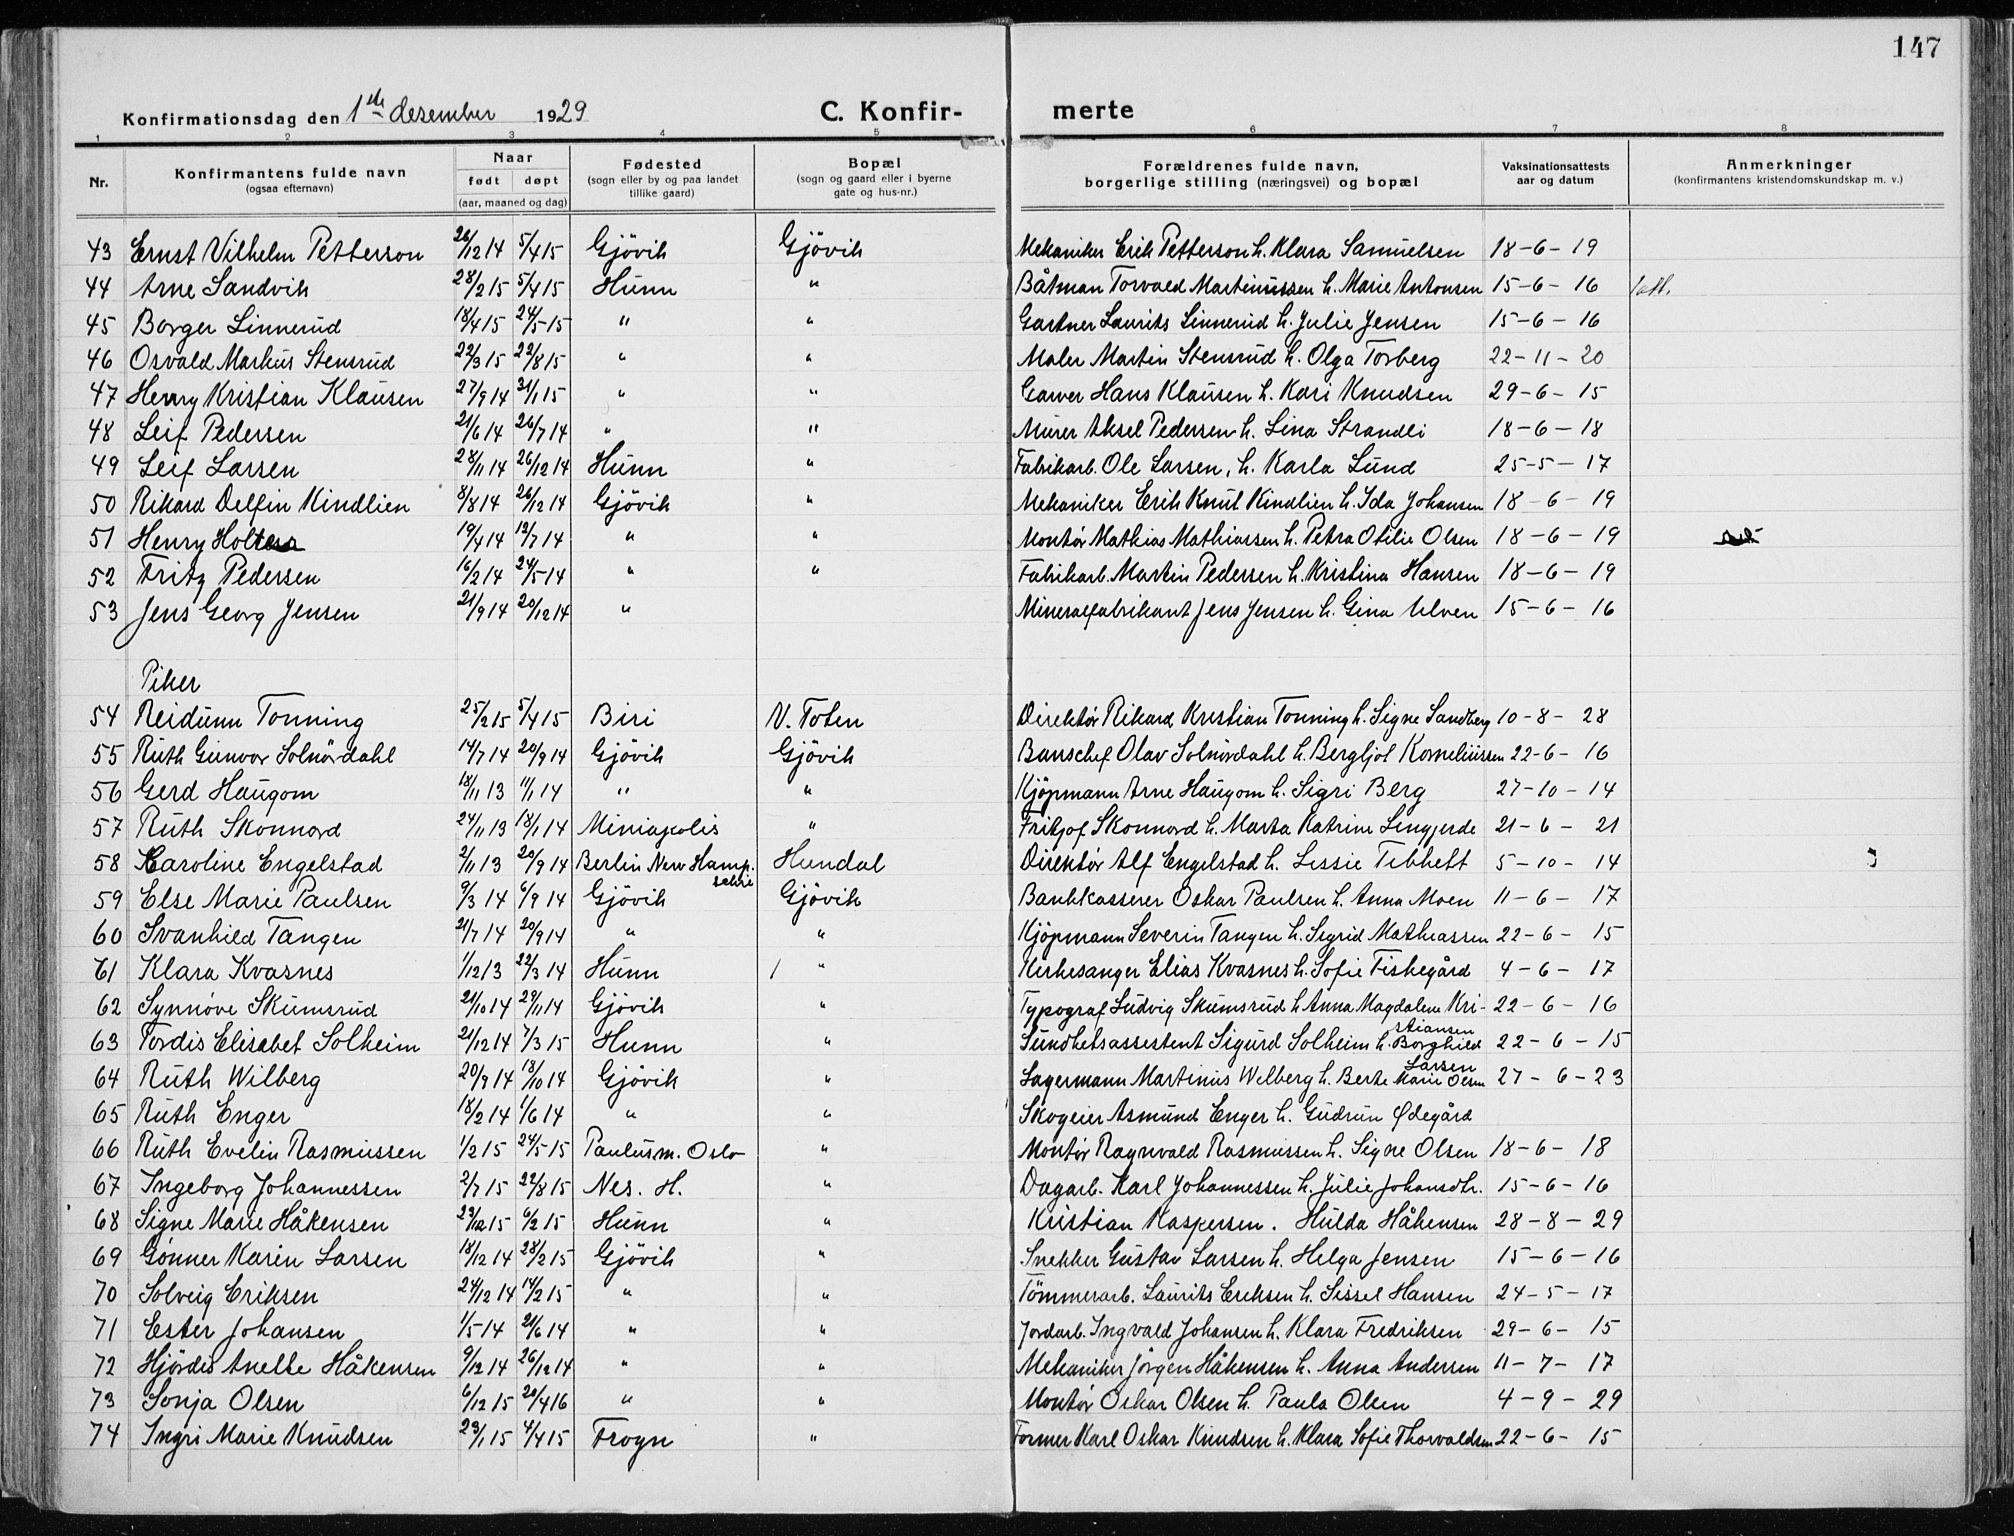 147
Konfirmationsdag den 1ste desember 1929 C. Konfir- merte
1 2 3 4 5 6 7 8
Nr. Konfirmantens fulde navn (ogsaa efternavn) Naar født døpt (aar, maaned og dag) Fødested (sogn eller by og paa landet tillike gaard) Bopæl (sogn og gaard eller i byerne gate og hus-nr.) Forældrenes fulde navn, borgerlige stilling (næringsvei) og bopæl Vaksinationsattests aar og datum Anmerkninger (konfirmantens kristendomskundskap m. v.)
43 Ernst Vilhelm Petterson 26/12 14 5/4 15 Gjövik Gjövik Mekaniker Erik Petterson h. Klara Samuelsen 18-6-19
44 Arne Sandvik 28/2 15 5/4 15 Hunn " Båtman Torvald Martinussen h. Marie Antonsen 15-6-16
45 Borger Linnerud 18/4 15 24/5-15 " " Gartner Laurits Linnerud h. Julie Jensen 15-6-16
46 Osvald Markus Stensrud 22/3 15 22/8 15 " " Maler Martin Stensrud h. Olga Torberg 22-11-20
47 Henry Kristian Klausen 27/9 14 31/1 15 " " Garver Hans Klausen h. Kari Knudsen 29-6-15
48 Leif Pedersen 21/6 14 26/7 14 " " Murer Aksel Pedersen h. Lina Strandli 18-6-18
49 Leif Larsen 28/11 14 26/12 14 Hunn " Fabrikarb. Ole Larsen, h. Karla Lund 25-5-17
50 Rikard Delfin Kindlien 8/8 14 26/12 14 Gjövik " Mekaniker Erik Knut Kindlien h. Ida Johansen 18-6-19
51 Henry Holter 19/4 14 12/7 14 " " Montør Mathias Mathiassen h. Petra Otilie Olsen 18-6-19
52 Fritz Pedersen 16/2 14 24/5 14 " " Fabrikarb. Martin Pedersen h. Kristina Hansen 18-6-19
53 Jens Georg Jensen 21/9 14 20/12 14 " Mineralfabrikant Jens Jensen h. Gina Ulven 15-6-16
Piker
54 Reidunn Tonning 25/2 15 5/4 15 Biri V. Toten Direktør Rikard Kristian Tonning h. Signe Sandberg 10-8-28
55 Ruth Gunvor Solnördahl 14/7 14 20/9 14 Gjövik Gjövik Banschef Olav Solnördahl h. Bergljot Korneliussen 22-6-16
56 Gerd Haugom 18/11 13 11/1 14 " " Kjöpmann Arne Haugom h. Sigri Berg 27-10-14
57 Ruth Skonnord 24/11 13 18/1 14 Miniapolis " Fritjof Skonnord h. Marta Katrine Lengjerde 21-6-21
58 Caroline Engelstad 2/11 13 20/9 14 Berlin New Hamp. Hundal Direktör Alf Engelstad h. Lissie Tibbett 5-10-14
schire
59 Else Marie Paulsen 9/3 14 6/9 14 Gjövik Gjövik Bankkasserer Oskar Paulsen h. Anna Moen 11-6-17
60 Svanhild Tangen 21/7 14 20/9 14 " " Kjöpmann Severin Tangen h. Sigrid Mathiassen 22-6-15
61 Klara Kvasnes 1/12 13 22/3 14 Hunn " Kirkesanger Elias Kvasnes h. Sofie Fiskegård 4-6-17
62 Synnöve Skumsrud 21/10 14 29/11 14 Gjövik " Typograf Ludvig Skumsrud h. Anna Magdalene Kri- 22-6-16
stiansen
63 Tordis Elisabet Solheim 21/12 14 7/3 15 Hunn " Sundhetsassistent Sigurd Solheim h. Borghild 22-6-15
Larsen
64 Ruth Wilberg 20/9 14 18/10 14 Gjövik " Lagermann Martinus Wilberg h. Berte Marie Olsen 27-6-23
65 Ruth Enger 18/2 14 1/6 14 " " Skogeier Asmund Enger h. Gudrun Ødegård
66 Ruth Evelin Rasmussen 1/2 15 24/5-15 Paulusm. Oslo " Montör Ragnvald Rasmussen h. Signe Olsen 18-6-18
67 Ingeborg Johannessen 2/7 15 22/8 15 Nes. H. " Dagarb. Karl Johannessen h. Julie Johansdtr. 15-6-16
68 Signe Marie Håkensen 15 6/2 15 Hunn " Kristian Kaspersen. Hulda Håkensen 28-8-29
69 Gunner Karin Larsen 18/12 14 28/2 15 Gjövik " Snekker Gustav Larsen h. Helga Jensen 15-6-16
70 Solveig Eriksen 24/12 14 14/2 15 " " Tömmerarb. Laurits Eriksen h. Sissel Hansen 24-5-17
71 Ester Johansen 1/5-14 21/6 14 " " Jordarb. Ingvald Johansen h. Klara Fredriksen 29-6-15
72 Hjördis Anelle Håkensen 9/12 14 26/12 14 " " Mekaniker Jörgen Håkensen h. Anna Andersen 11-7-17
73 Sonja Olsen 6/12 15 20/4 16 " " Montör Oskar Olsen h. Paula Olsen 4-9-29
74 Ingri Marie Knudsen 29/1 15 4/4 15 Frogn " Former Karl Oskar Knudsen h. Klara Sofie Thorvaldsen 22-6-15